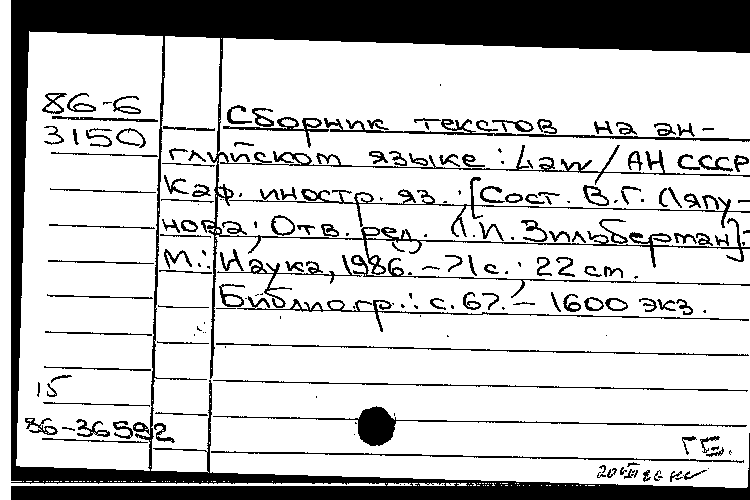 86-6
3150
Сборник текстов на ан-
глийском языке : Law / АН СССР
Каф. иностр. яз. ; [Сост. В.Г. Ляпу-
нова ; Отв. ред. Л.И. Зильберман].-
М. : Наука, 1986. – 71 с. ; 22 cm.
Библиогр.: с. 67. – 1600 экз.
15
86-36592
ГБ.